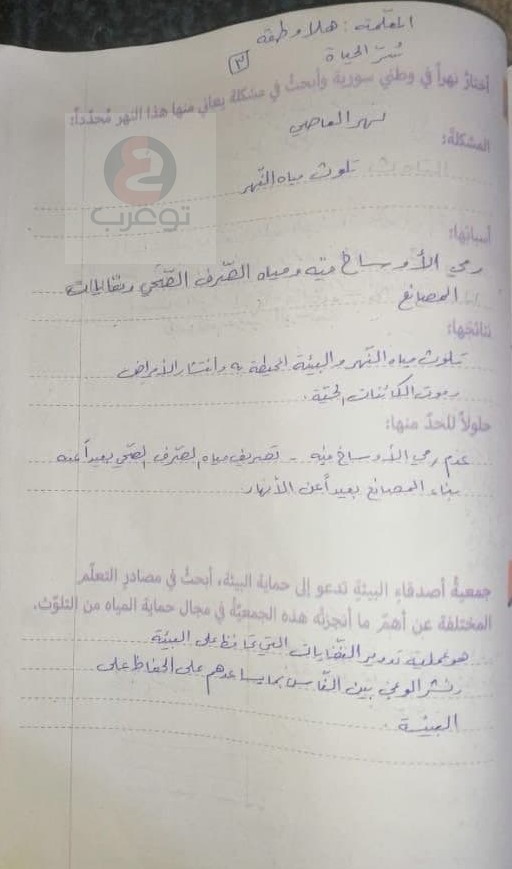 المعلمة: هلا وطفه
سر الحياة
٣
أختارُ نهراً في وطني سورية وأبحثُ في مشكلة يعاني منها هذا النهر مُحدِّداً:
نهر العاصي
المشكلة:
تلوث مياه النّهر
ع
توعرب
أسبابها:
رمي الأوساخ فيه ومياه الصّرف الصّحّي ونفايات
المصانع
نتائجها:
تلوث مياه النّهر والبيئة المحيطة به وانتشار الأمراض
وموت الكائنات الحيّة.
حلولاً للحدّ منها:
عدم رمي الأوساخ فيه - تصريف مياه الصّرف الصّحي بعيداً عنه
بناء المصانع بعيداً عن الأنهار
جمعيةُ أصدقاءِ البيئةِ تدعو إلى حماية البيئة، أبحثُ في مصادر التعلّم
المختلفة عن أهمّ ما أنجزتْه هذه الجمعيّةُ في مجال حماية المياه من التلوّث.
هو عملية تدوير النّفايات التي تحافظ على البيئة
ونشر الوعي بين النّاس بما يساعدهم على الحفاظ على
البيئة.